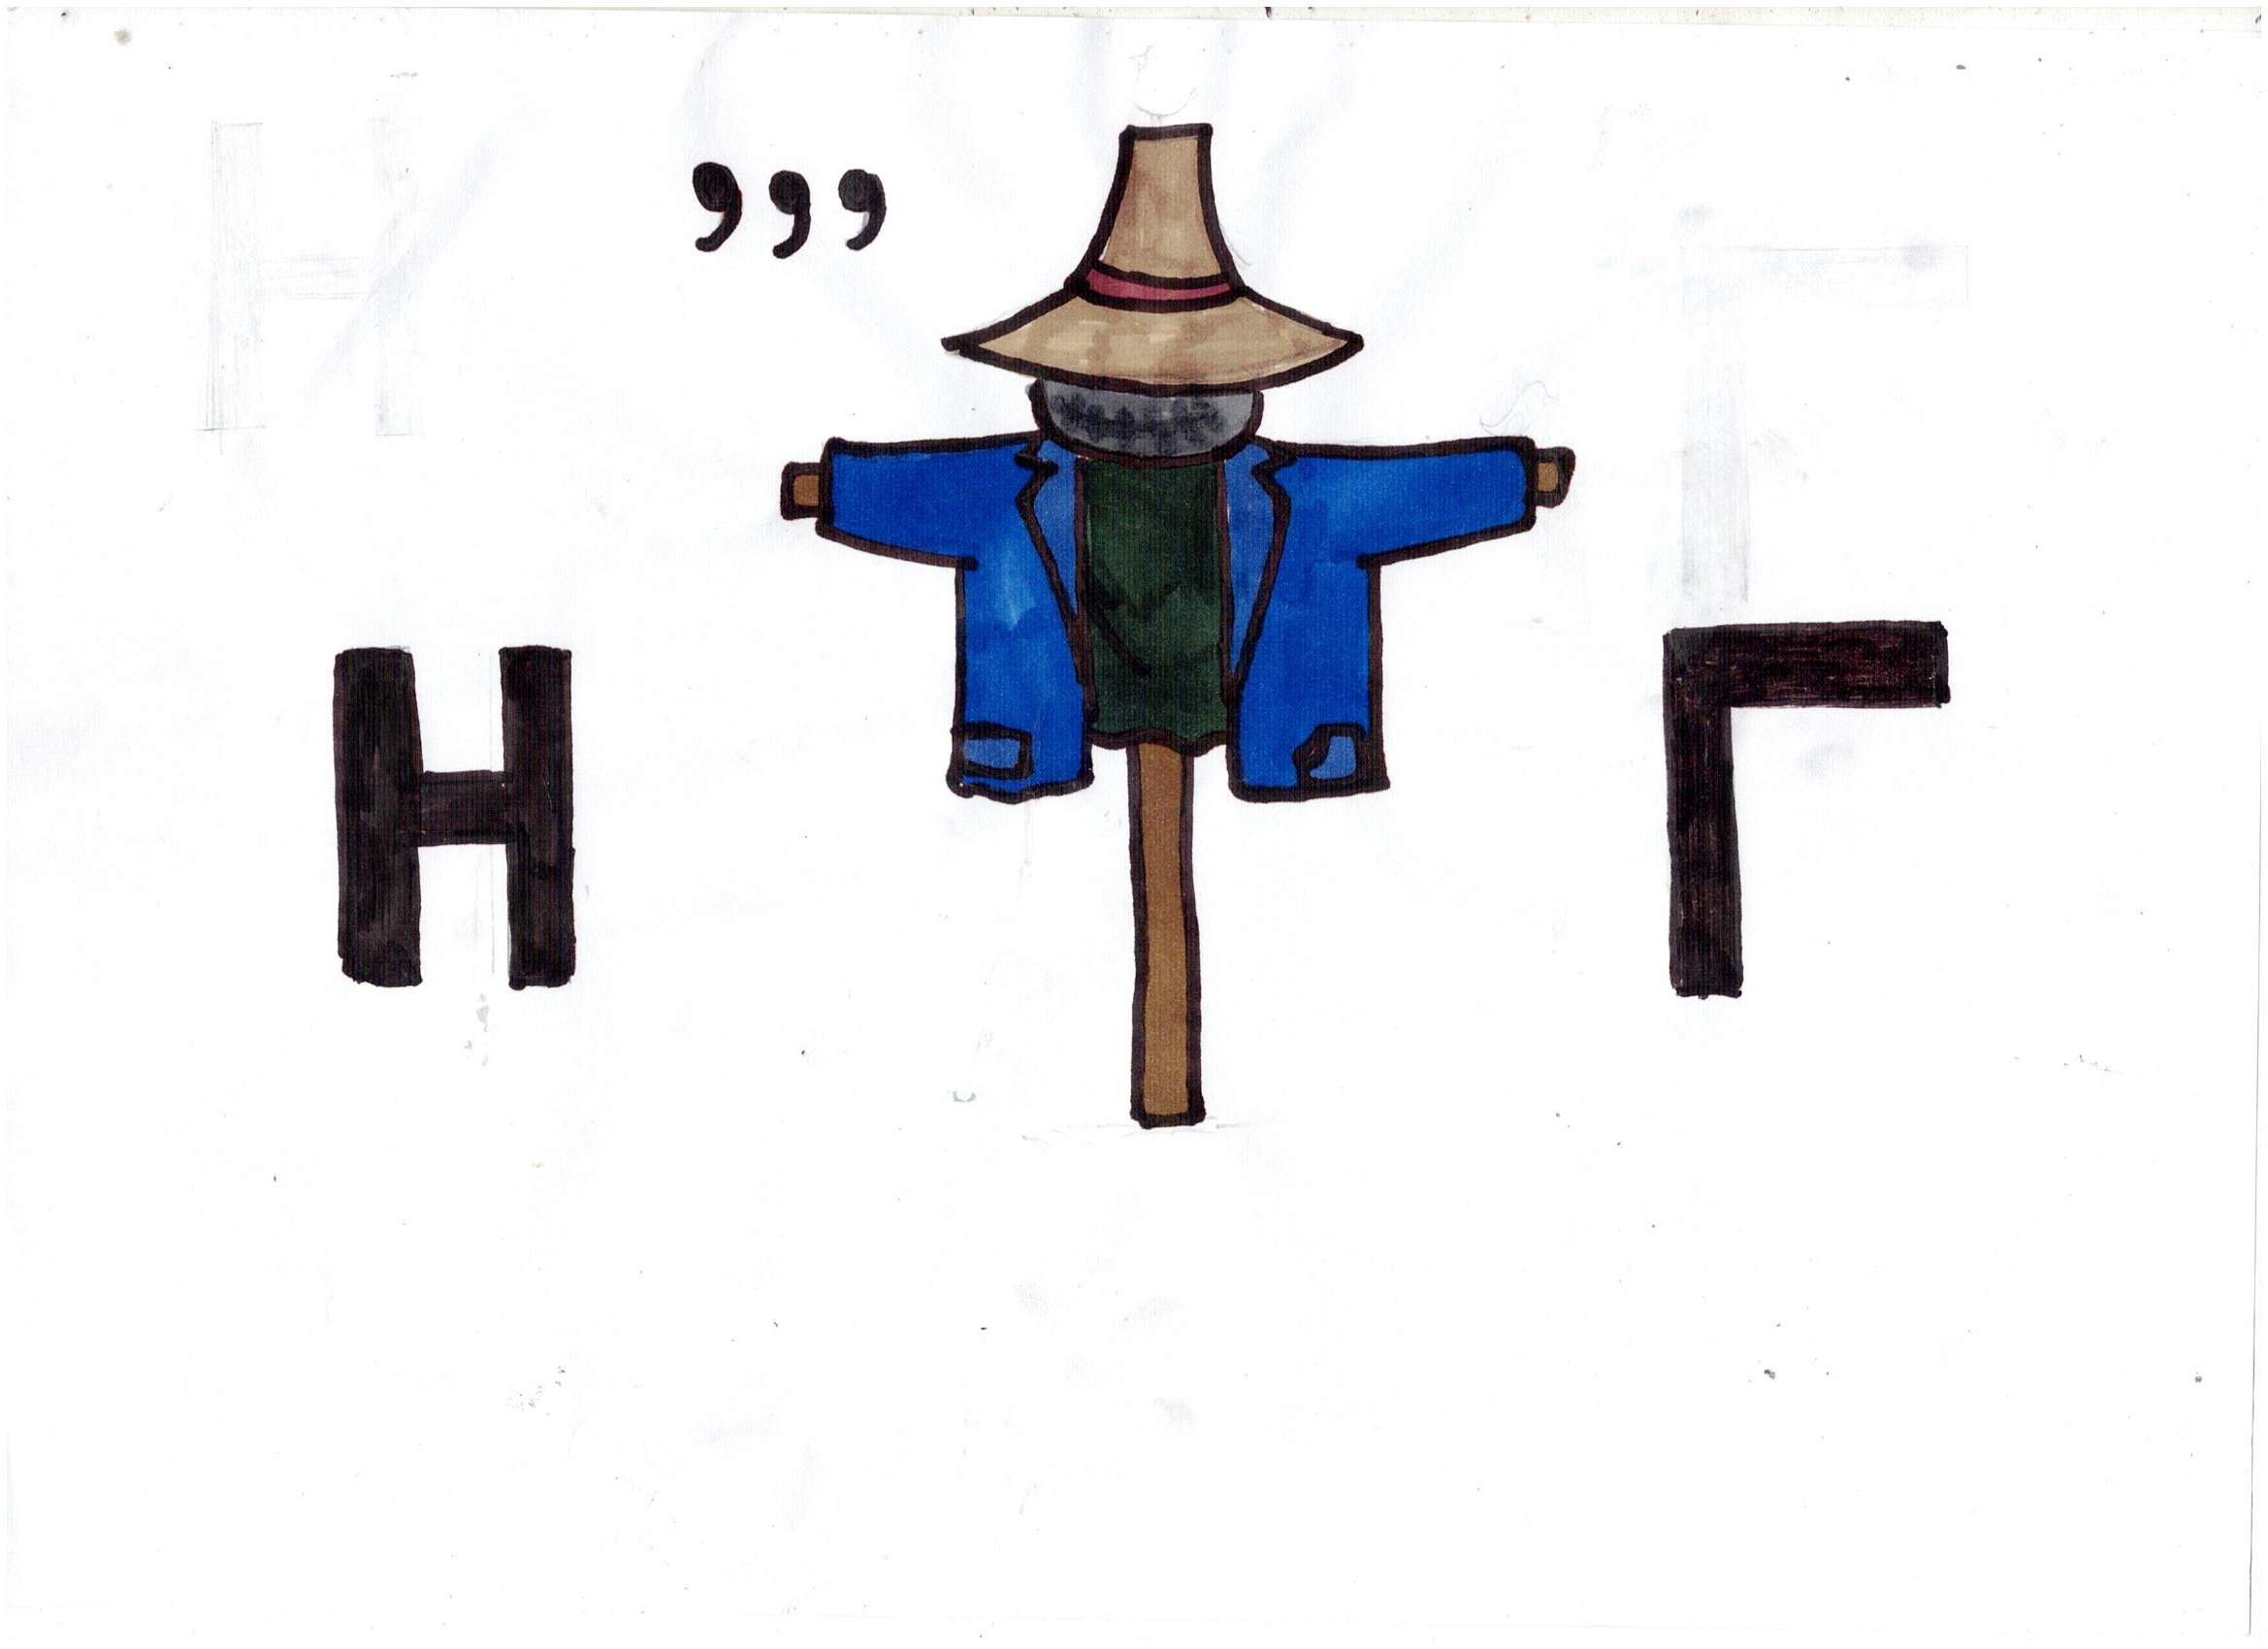 ,,,
Н Г